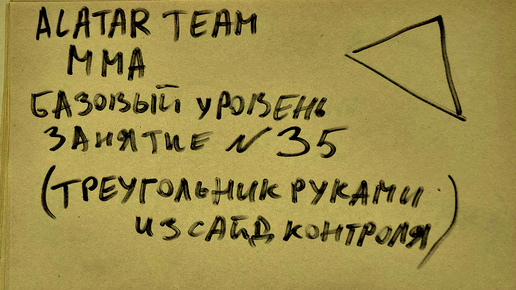 ALATAR TEAM
MMA
БАЗОВЫЙ УРОВЕНЬ
ЗАНЯТИЕ N 35
(ТРЕУГОЛЬНИК РУКАМИ
ИЗ САЙД КОНТРОЛЯ)